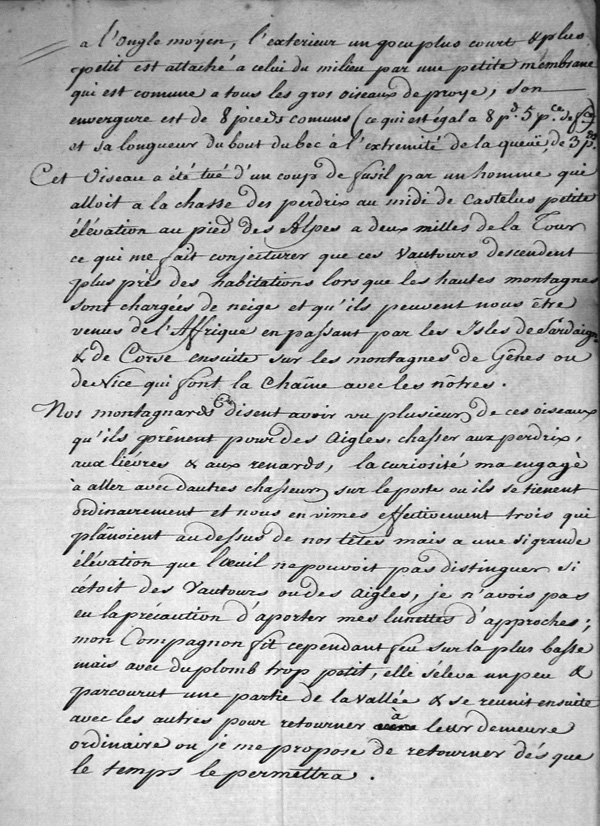 a l'ongle moyen, l'exterieur un peu plus court & plus
petit est attaché a celui du milieu par une petite membrane
qui est comune a tous les gros oiseaux de proye, son
envergure est de 8 pieds comuns (ce qui est égal a 8 pds. 5 pces. de
et sa longueur du bout du bec à l'extremité de la queüe, de 3 pds
Cet Oiseau a été tué d'un coup de fusil par un homme qui
alloit a la chasse des perdrix au midi de Castelus petite
élévation au pied des Alpes a deux milles de la Tour
ce qui me fait conjecturer que ces Vautours descendent
plus près des habitations lors que les hautes montagnes
sont chargées de neige et qu'ils peuvent nous être
venus de l'Affrique en passant par les Isles de Sardaigne
& de Corse ensuite sur les montagnes de Gênes ou
de Nice qui font la Chaîne avec les nôtres.
Nos montagnards disent avoir vu plusieurs de ces oiseaux
qu'ils prênent pour des Aigles, chasser aux perdrix,
aux liévres & aux renards, la curiosité ma engagè
à aller avec dautres chasseurs sur le poste ou ils se tienent
ordinairement et nous en vimes effectivement trois qui
plânoient au dessus de nos têtes mais a une si grande
élévation que l'oeuil ne pouvoit pas distinguer si
c'étoit des Vautours ou des Aigles, je n'avois pas
eu la précaution d'aporter mes lunettes d'approches;
mon Compagnon fit cependant feu sur la plus basse
mais avec du plomb trop petit, elle s'éleva un peu &
parcourut une partie de la vallée & se reunit ensuite
avec les autres pour retourner à leur demeure
ordinaire ou je me propose de retourner dés que
le temps le permettra.